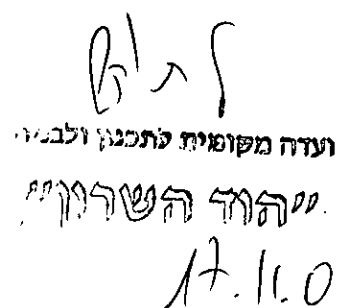 ועדה מקומית לתכנון ולבניה
"הוד השרון"
17.11.0